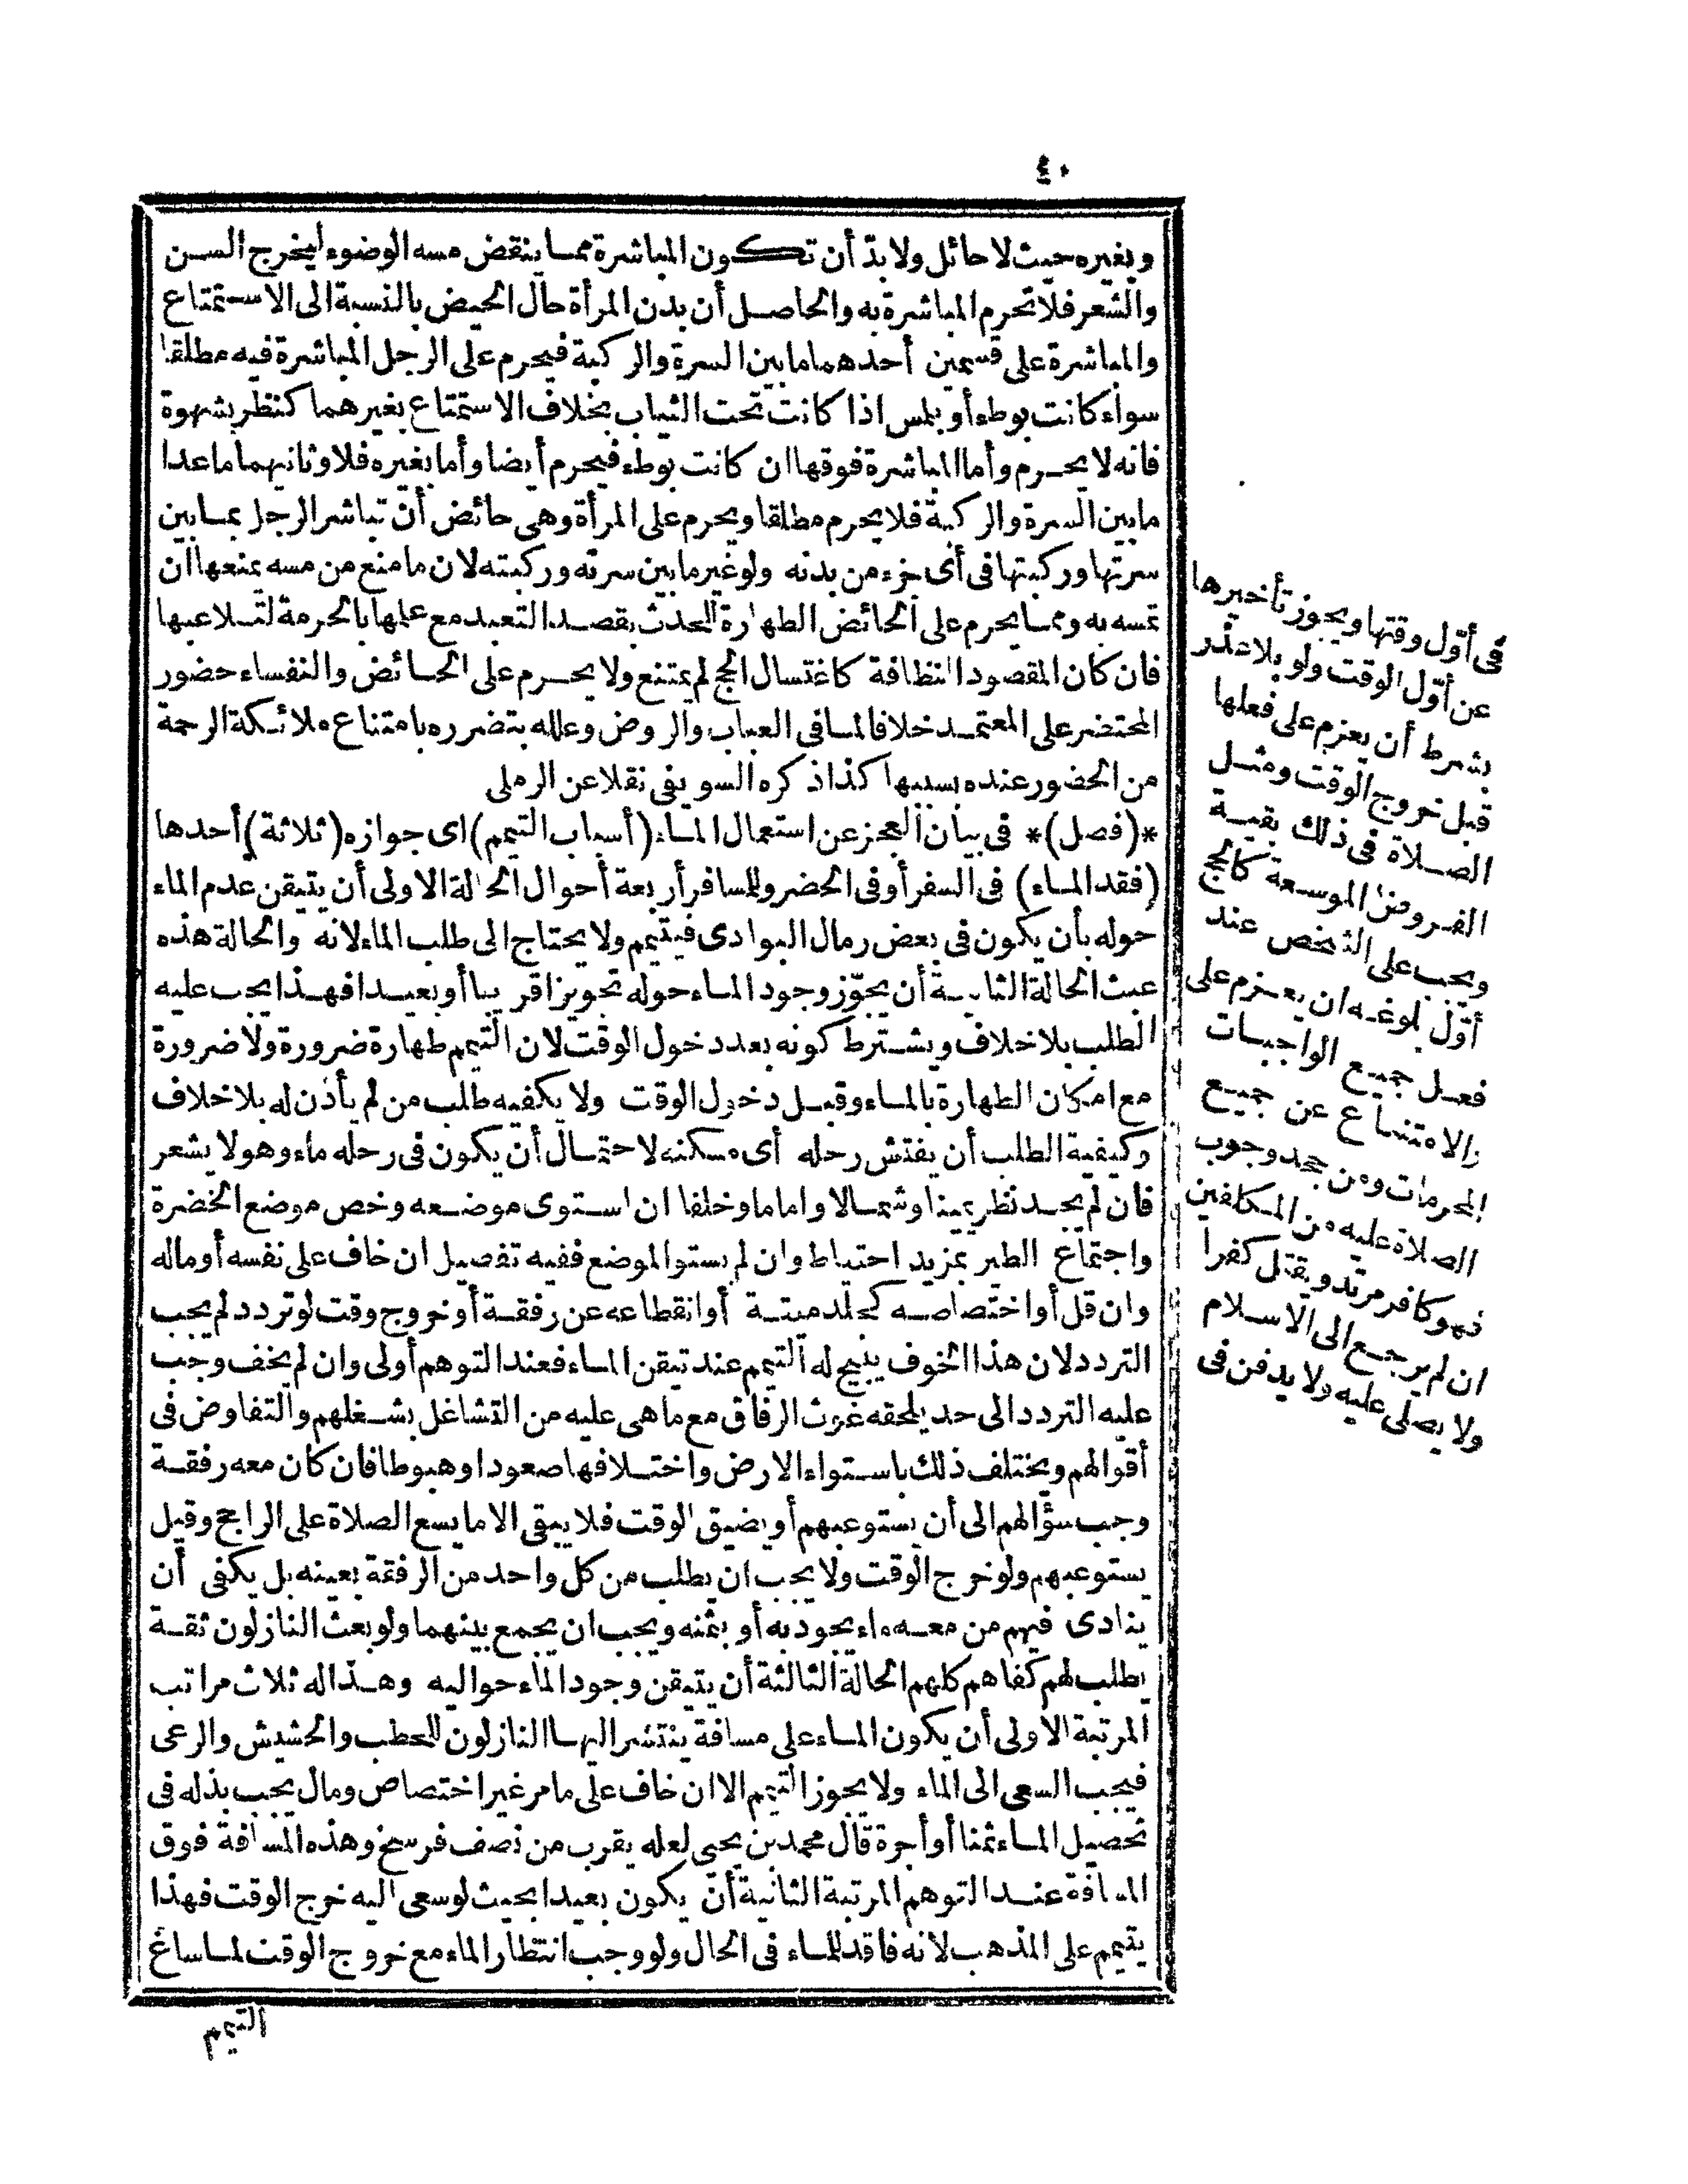 ٤٠
وبغيره حيث لا حائل ولا بدّ أن تكون المباشرة مما ينقض مسه الوضوء ليخرج السن
والشعر فلا تحرم المباشرة به والحاصل أن بدن المرأة حال الحيض بالنسبة الى الاستمتاع
والمباشرة على قسمين أحدهما ما بين السرة والركبة فيحرم على الرجل المباشرة فيه مطلقا
سواء كانت بوطء أو بلمس اذا كانت تحت الثياب بخلاف الاستمتاع بغيرهما كنظر بشهوة
فانه لا يحرم وأما المباشرة فوقها ان كانت بوطء فيحرم أيضا وأما بغيره فلا وثانيهما ما عدا
ما بين السرة والركبة فلا يحرم مطلقا ويحرم على المرأة وهى حائض أن تباشر الرجل بما بين
سرتها وركبتها فى أى جزء من بدنه ولو غير ما بين سرته وركبته لان ما منع من مسه يمنعها ان
تمسه به ومما يحرم على الحائض الطهارة للحدث بقصد التعبد مع علمها بالحرمة لتلاعبها
فان كان المقصود النظافة كاغتسال الحج لم يمتنع ولا يحرم على الحائض والنفساء حضور
المحتضر على المعتمد خلافا لما فى العباب والروض وعلله بتضرره بامتناع ملائكة الرحمة
من الحضور عنده بسببها كذا ذكره السويفى نقلا عن الرملى
*(فصل)* فى بيان العجز عن استعمال الماء (أسباب التيمم) اى جوازه (ثلاثة) أحدها
(فقد الماء) فى السفر أو فى الحضر وللمسافر أربعة أحوال الحالة الاولى أن يتيقن عدم الماء
حوله بأن يكون فى بعض رمال البوادى فيتيمم ولا يحتاج الى طلب الماء لانه والحالة هذه
عبث الحالة الثانية أن يجوّز وجود الماء حوله تجويزا قريبا أو بعيدا فهذا يجب عليه
الطلب بلا خلاف ويشترط كونه بعد دخول الوقت لان التيمم طهارة ضرورة ولا ضرورة
مع امكان الطهارة بالماء وقبل دخول الوقت ولا يكفيه طلب من لم يأذن له بلا خلاف
وكيفية الطلب أن يفتش رحله أى مسكنه لاحتمال أن يكون فى رحله ماء وهو لا يشعر
فان لم يجد نظر يمينا وشمالا واماما وخلفا ان استوى موضعه وخص موضع الخضرة
واجتماع الطير بمزيد احتياط وان لم يستو الموضع ففيه تفصيل ان خاف على نفسه أو ماله
وان قل أو اختصاصه كجلد ميتة أو انقطاعه عن رفقة أو خروج وقت لو تردد لم يجب
التردد لان هذا الخوف يبيح له التيمم عند تيقن الماء فعند التوهم أولى وان لم يخف وجب
عليه التردد الى حد يلحقه غوث الرفاق مع ما هى عليه من التشاغل بشغلهم والتفاوض فى
أقوالهم ويختلف ذلك باستواء الارض واختلافها صعودا وهبوطا فان كان معه رفقة
وجب سؤالهم الى أن يستوعبهم أو يضيق الوقت فلا يبقى الا ما يسع الصلاة على الراجح وقيل
يستوعبهم ولو خرج الوقت ولا يجب ان يطلب من كل واحد من الرفقة بعينه بل يكفى أن
ينادى فيهم من معه ماء يجود به أو بثمنه ويجب ان يجمع بينهما ولو بعث النازلون ثقة
يطلب لهم كفاهم كلهم الحالة الثالثة أن يتيقن وجود الماء حواليه وهذا له ثلاث مراتب
المرتبة الاولى أن يكون الماء على مسافة ينتشر اليها النازلون للحطب والحشيش والرعى
فيجب السعى الى الماء ولا يجوز التيمم الا ان خاف على ما مر غير اختصاص ومال يجب بذله فى
تحصيل الماء ثمنا أو أجرة قال محمد بن يحيى لعله يقرب من نصف فرسخ وهذه المسافة فوق
المسافة عند التوهم المرتبة الثانية أن يكون بعيدا بحيث لو سعى اليه خرج الوقت فهذا
يتيمم على المذهب لانه فاقد للماء فى الحال ولو وجب انتظار الماء مع خروج الوقت لما ساغ
التيمم
فى أوّل وقتها ويجوز تأخيرها
عن أوّل الوقت ولو بلا عذر
بشرط أن يعزم على فعلها
قبل خروج الوقت ومثل
الصلاة فى ذلك بقية
الفروض الموسعة كالحج
ويجب على الشخص عند
أوّل بلوغه ان يعزم على
فعل جميع الواجبات
والامتناع عن جميع
المحرمات ومن جحد وجوب
الصلاة عليه من المكلفين
فهو كافر مرتد ويقتل كفرا
ان لم يرجع الى الاسلام
ولا يصلى عليه ولا يدفن فى